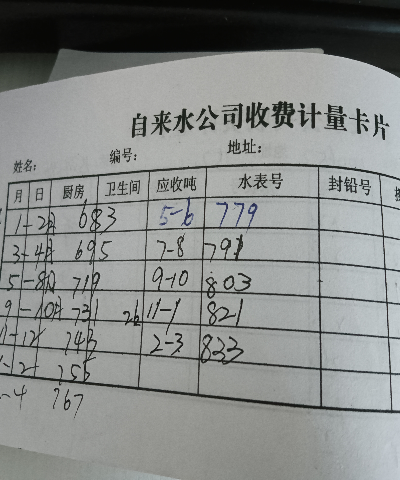 自来水公司收费计量卡片
姓名: 编号: 地址:
月 日 厨房 卫生间 应收吨 水表号 封铅号
1-2 683 5-6 779
3-4 695 7-8 791
5-8 719 9-10 803
9-10 731 11-1 821
11-12 743 2-3 833
1-2 755
-4 767